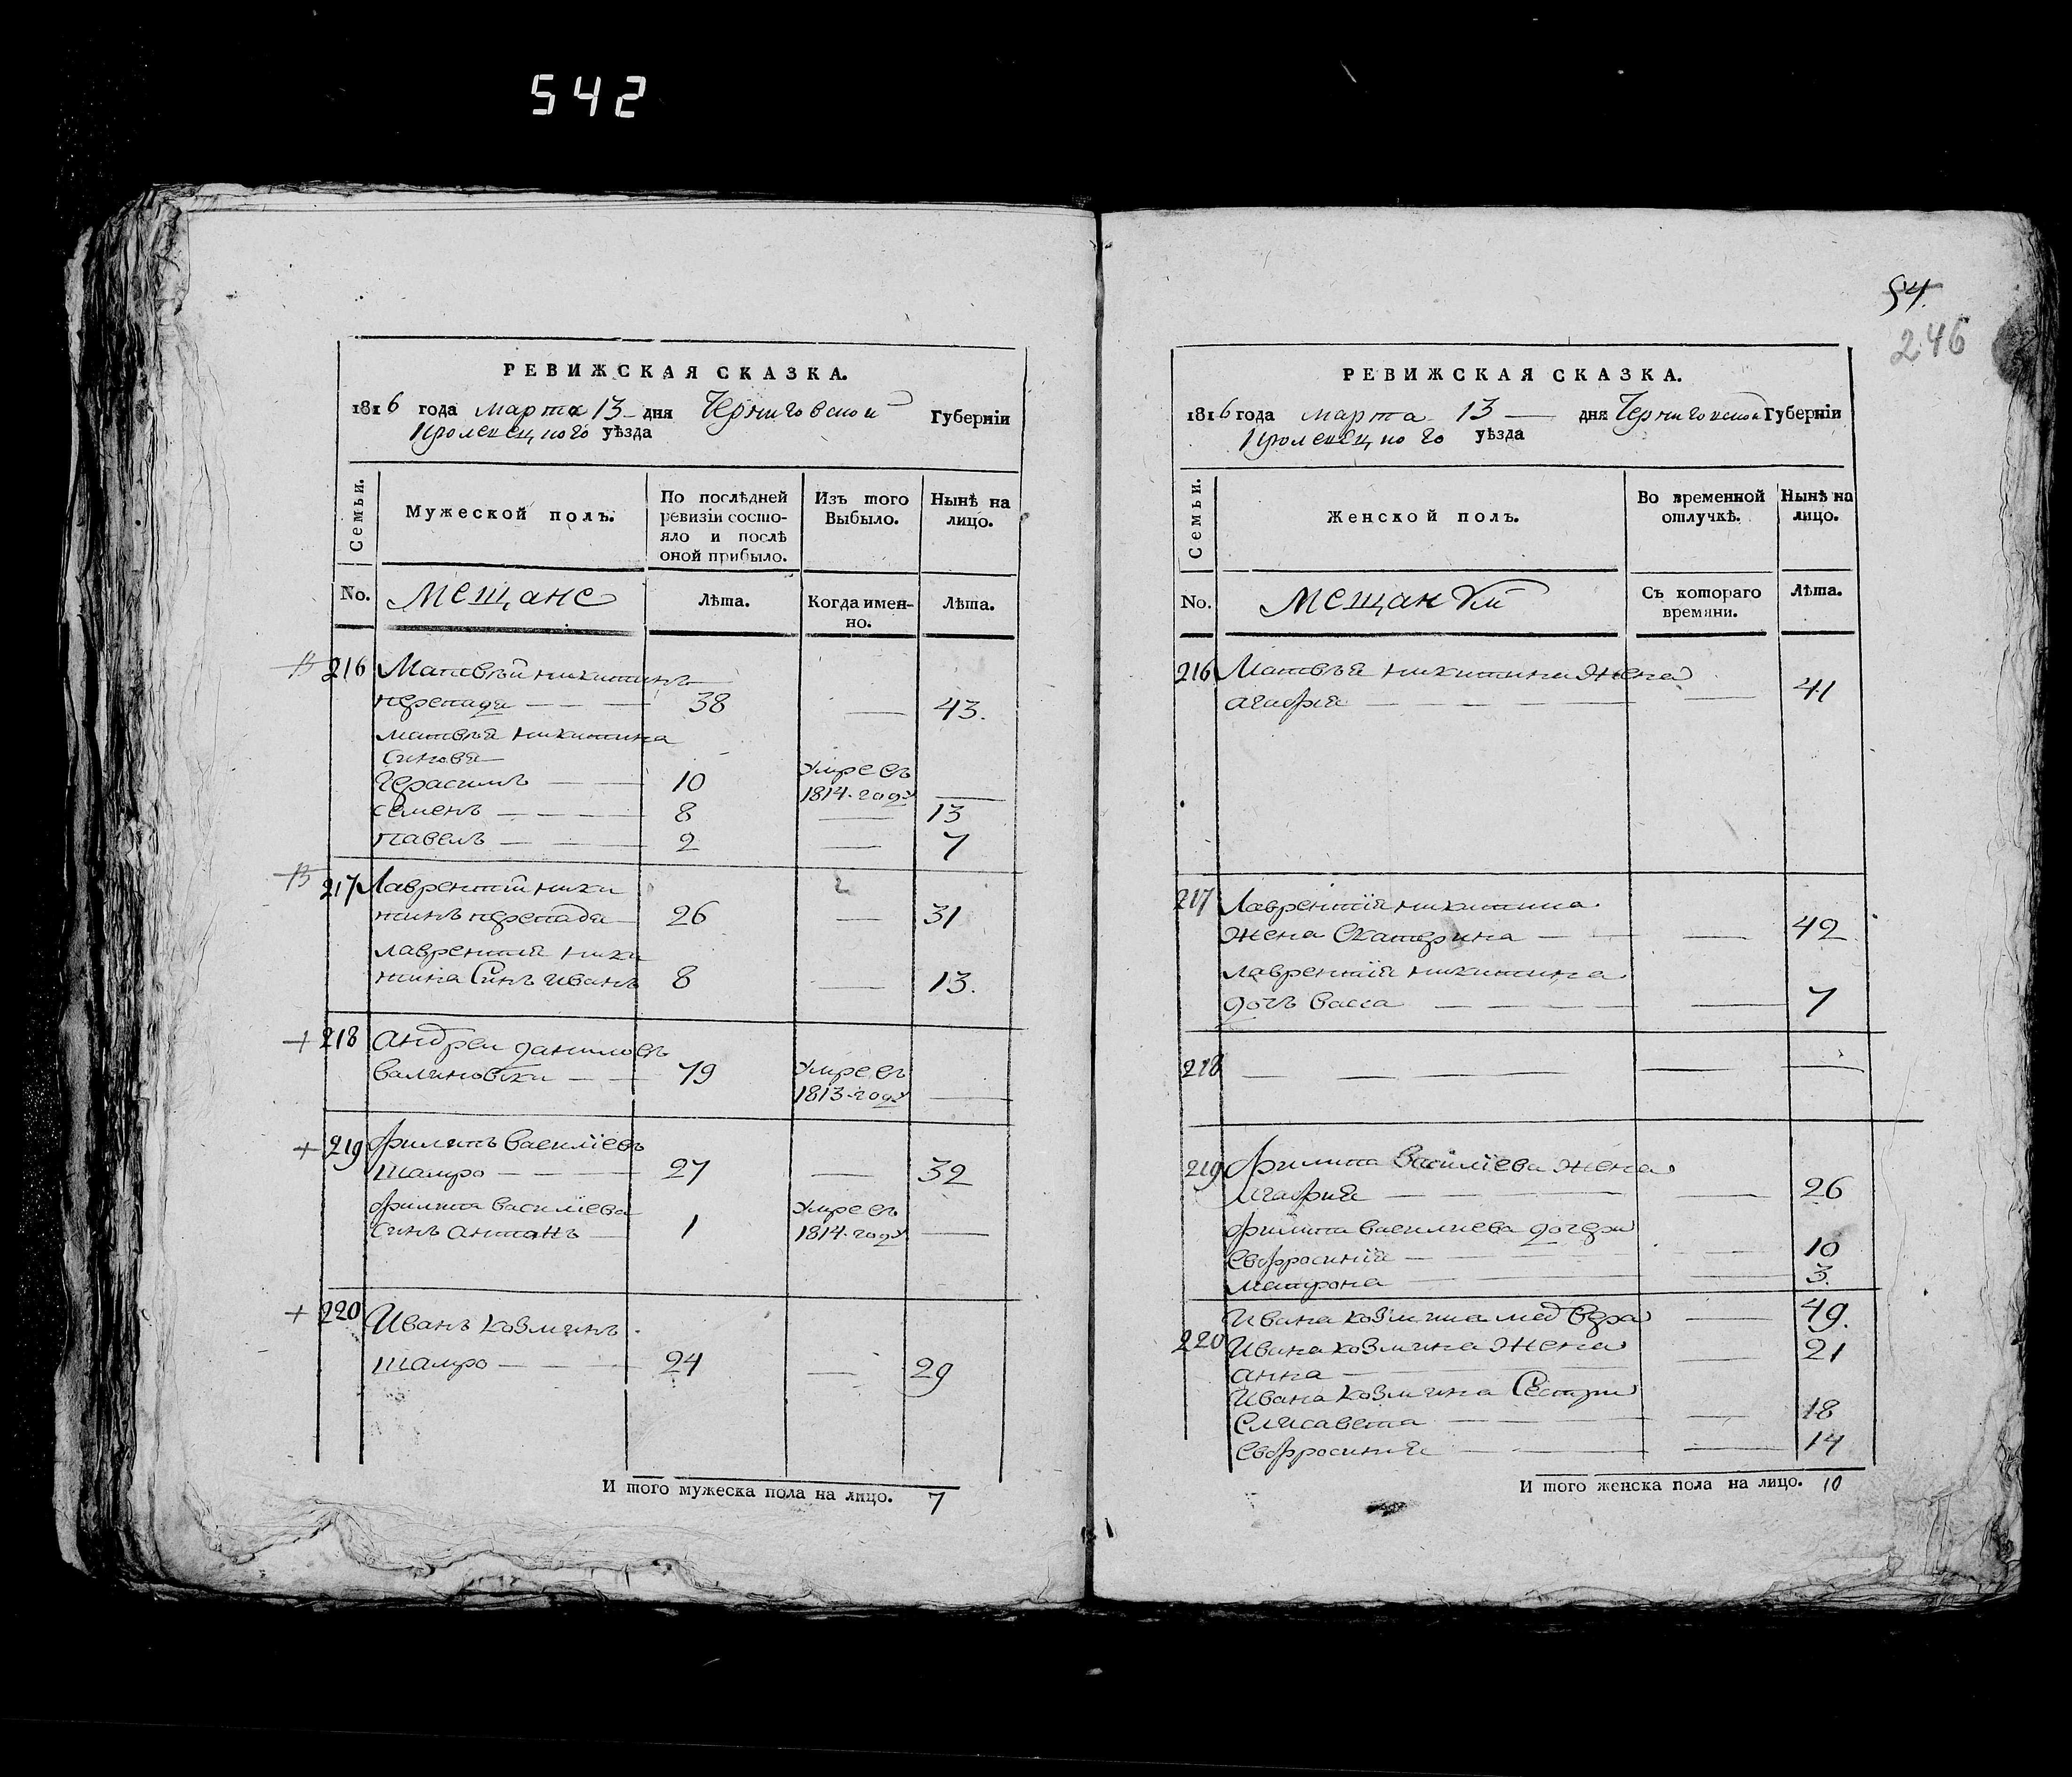 542
РЕВИЖСКАЯ СКАЗКА.
1816 года марта 13 дня Черниговской Губернїи
Кролевецкого уѣзда
Семьи.
Мужеской полъ.
По послѣдней ревизїи состо-яло и послѣ оной прибыло.
Изъ того Выбыло.
Нынѣ на лицо.
No.
Мещане
Лѣта.
Когда имен-но.
Лѣта.
216 Матвѣй никитинъ
перепада 38 — 43.
матвѣя никитина
синовя
Герасимъ 10 Умре въ 1814 году —
семенъ 8 — 13
павелъ 2 — 7
217 Лаврентий ники
тинъ перепада 26 — 31
лаврентия ники
тина Синъ иванъ 8 — 13.
218 андреи даниловъ
79 Умре въ 1813 году —
219 филипъ василїевъ
шапро 27 — 32
филипа василиева
синъ антонъ 1 Умре въ 1814 году —
220 Иванъ козминъ
шапро 24 — 29
И того мужеска пола на лицо. 7
54.
246
РЕВИЖСКАЯ СКАЗКА.
1816 года марта 13 — дня Черниговской Губернїи
Кролевецкого уѣзда
Семьи.
Женской полъ.
Во временной отлучкѣ.
Нынѣ на лицо.
No.
Мещанки
Съ котораго времяни.
Лѣта.
216 Матвѣя никитина жена
агафия — 41
217 Лаврентїя никитина
жена Екатерина — 42
лаврентїя никитина
дочъ васса — 7
218 — — —
219 Филипа Василїева жена
агафия — 26
филипа василиева дочери
евфросинїя — 10
матрона — 3.
220 Ивана козмина — 49.
Ивана козмина жена
анна — 21
Ивана козмина Сестри
елисавета — 18
евфросиния — 14
И того женска пола на лицо. 10